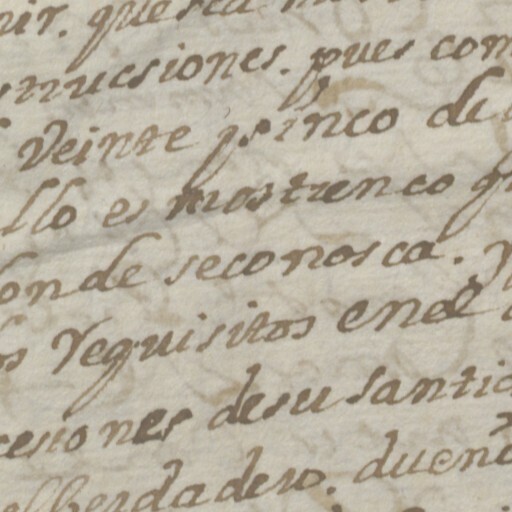 nir. que sea
nucsiones. pues com
Veinte, y sinco de
llo es mostrenco q
onde seconosca. y
os requisitos enel
cesiones desu santid
elberdadero. dueño